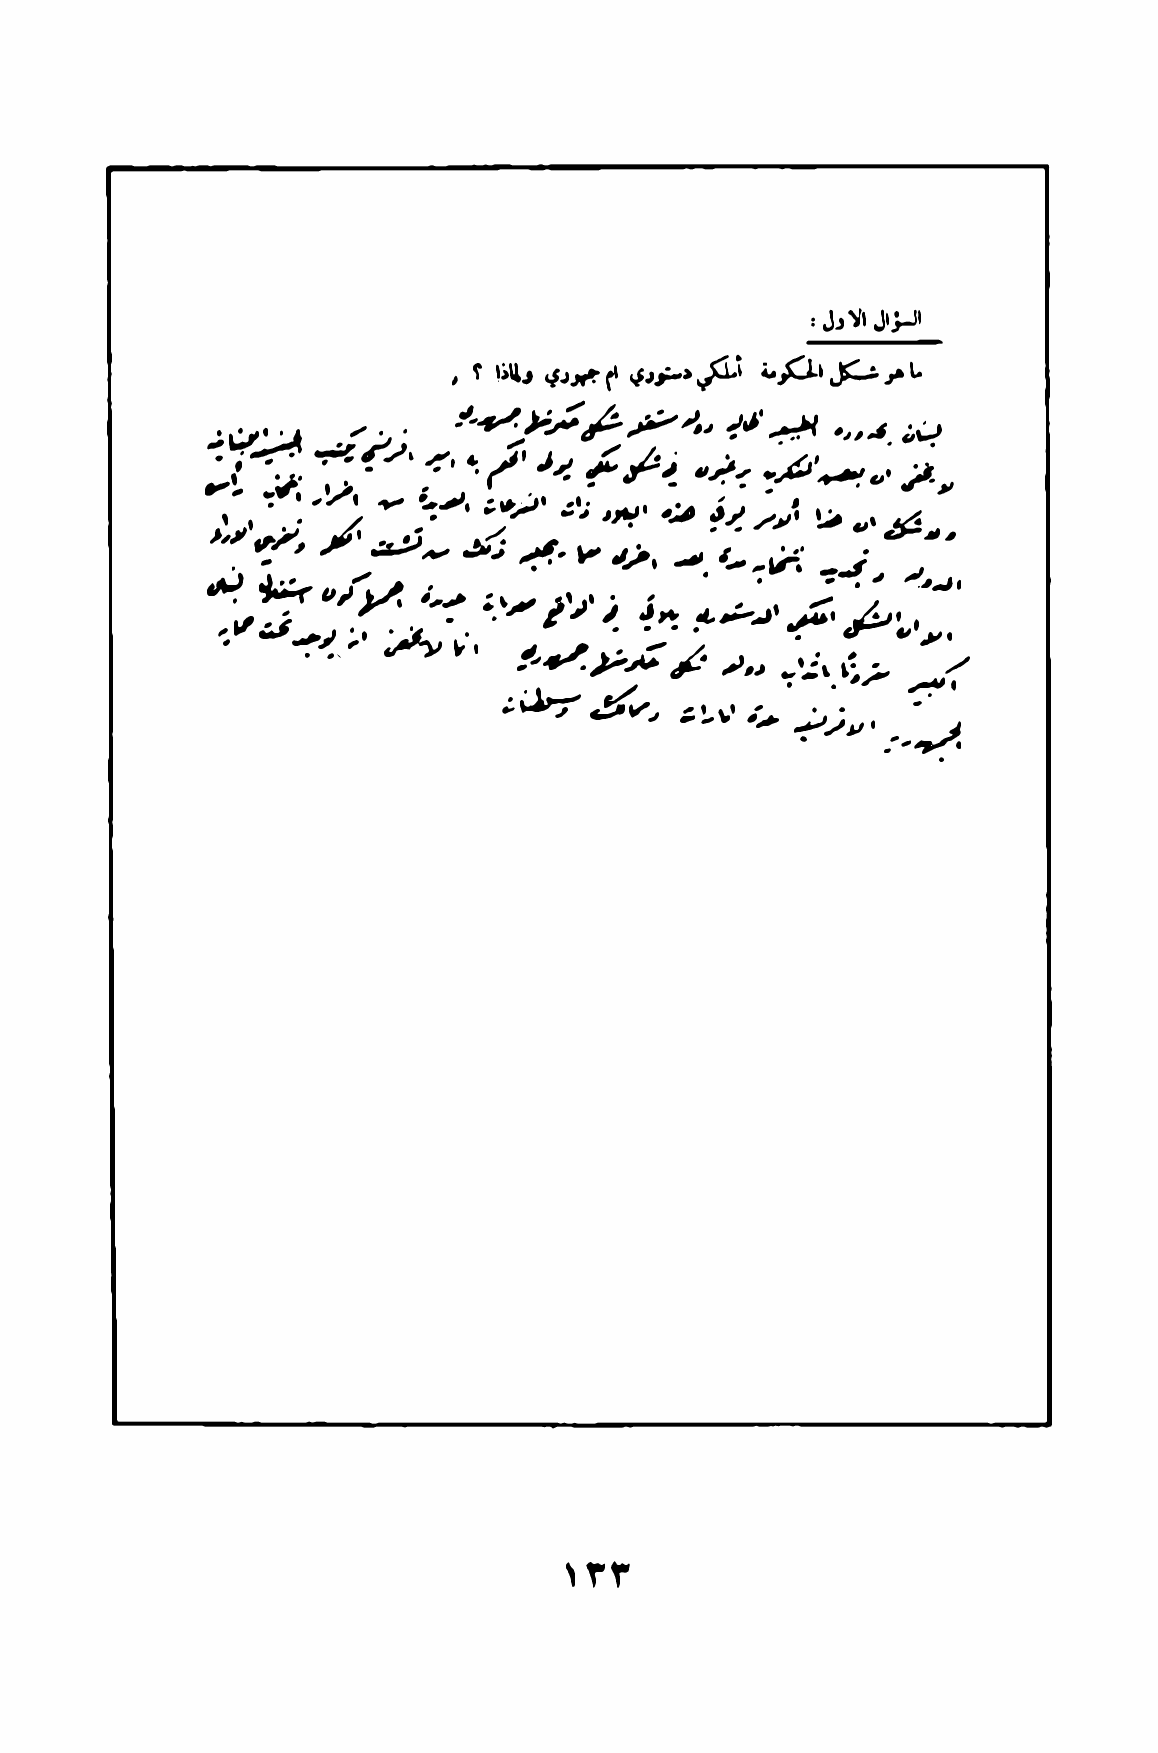 السؤال الاول :
ما هو شكل الحكومة أملكي دستوري ام جمهوري ولماذا ؟ ,
لبنان بحدوده الطبيعيه الحاليه دوله مستقله شكل حكومتها جمهوريه
لا يخفى ان بعض المفكرين يرغبون في شكل ملكي يولى الحكم به امير افرنسي يكتسب الجنسيه اللبنانيه
ولا شك ان هذا الامر يوقي هذه البلاد ذات النزعات العديدة من اضرار انتخاب رأس
الدوله وتجديد انتخابه مدة بعد اخرى مما يجلبه ذلك من تشتت الكلمه وتفريق الاراء
الا ان الشكل الملكي الدستوري يلاقي في الواقع صعوبات عديدة اهمها كون استقلال لبنان
الكبير مقرونًا باثبات دوله شكل حكومتها جمهوريه انما لا يخفى انه يوجد تحت حمايه
الجمهورية الافرنسيه عدة امارات وممالك وسلطنات
١٣٣